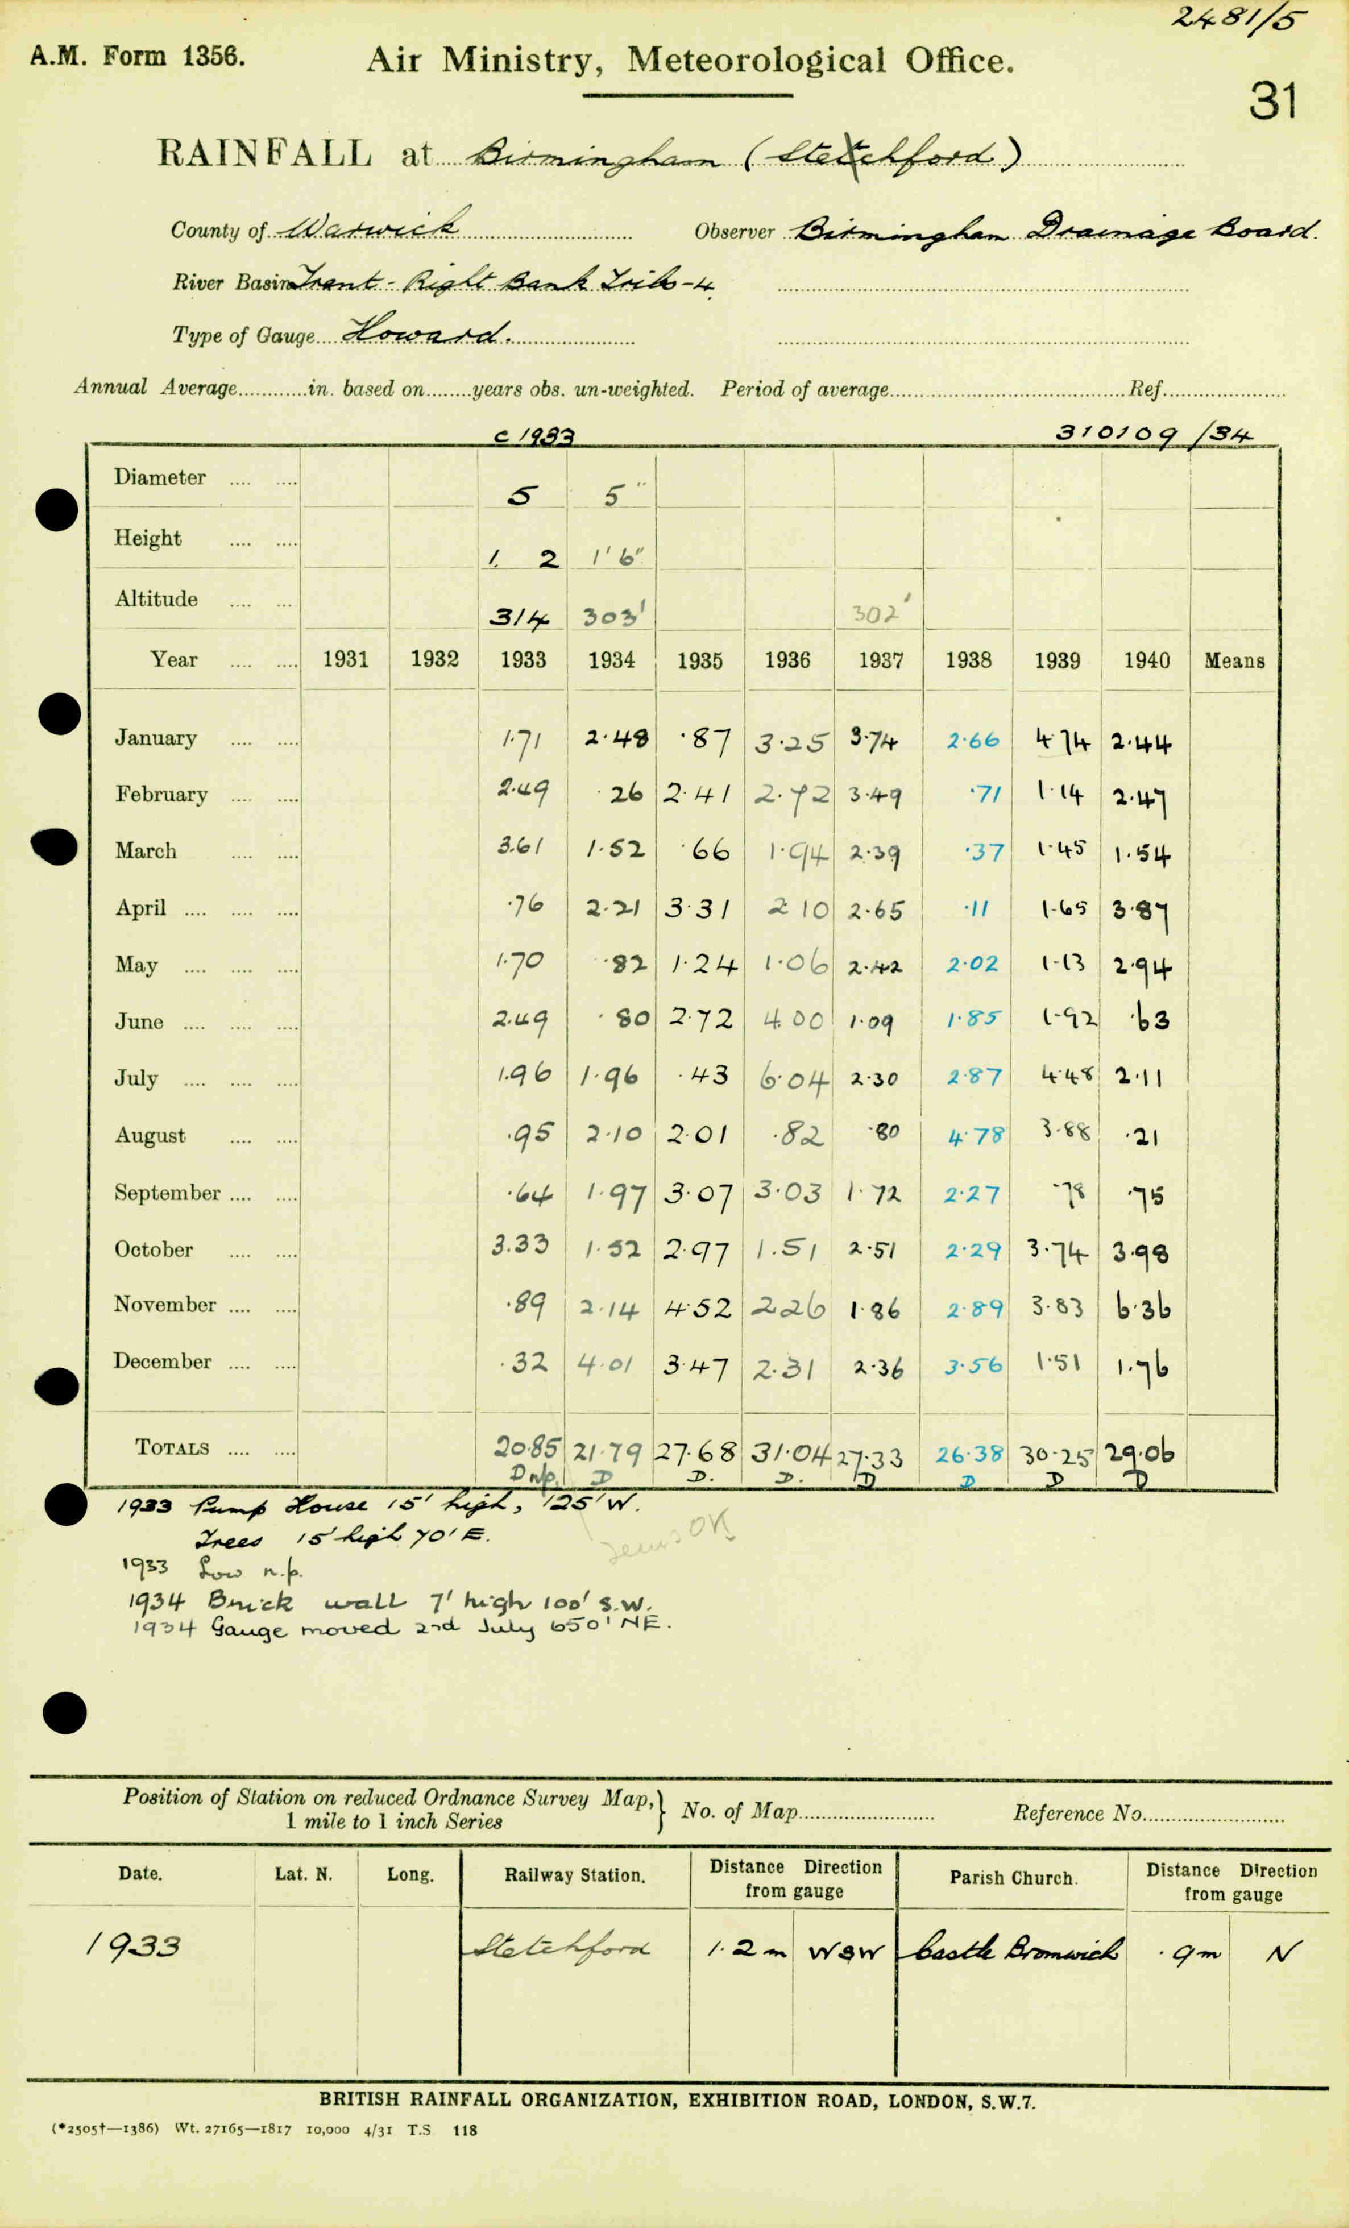 2481/5
A.M. Form 1356. Air Ministry, Meteorological Office.
31
RAINFALL at Birmingham (Stetchford)
County of Warwick Observer Birmingham Drainage Board.
River Basin Trent - Right Bank Tribs - 4
Type of Gauge Howard.
Annual Average............in. based on........years obs. un-weighted. Period of average.......... Ref..........
c 1933 310109/34
Diameter .... .... 5 5"
Height .... .... 1. 2 1'6"
Altitude .... .... 314 303' 302'
Year .... .... 1931 1932 1933 1934 1935 1936 1937 1938 1939 1940 Means
January .... .... 1.71 2.48 .87 3.25 3.74 2.66 4.74 2.44
February .... .... 2.49 .26 2.41 2.72 3.49 .71 1.14 2.47
March .... .... 3.61 1.52 .66 1.94 2.39 .37 1.45 1.54
April .... .... .... .76 2.21 3.31 2.10 2.65 .11 1.65 3.87
May .... .... .... 1.70 .82 1.24 1.06 2.42 2.02 1.13 2.94
June .... .... .... 2.49 .80 2.72 4.00 1.09 1.85 1.92 .63
July .... .... .... 1.96 1.96 .43 6.04 2.30 2.87 4.48 2.11
August .... .... .95 2.10 2.01 .82 .80 4.78 3.88 .21
September .... .... .64 1.97 3.07 3.03 1.72 2.27 .78 .75
October .... .... 3.33 1.52 2.97 1.51 2.51 2.29 3.74 3.98
November .... .... .89 2.14 4.52 2.26 1.86 2.89 3.83 6.36
December .... .... .32 4.01 3.47 2.31 2.36 3.56 1.51 1.76
TOTALS .... .... 20.85 21.79 27.68 31.04 27.33 26.38 30.25 29.06
D n/p. D D. D. D D D D
1933 Pump House 15' high, 125' W.
Trees 15' high 70' E.
1933 Low n.p.
1934 Brick wall 7' high 100' S.W.
1934 Gauge moved 2nd July 650' NE.
Position of Station on reduced Ordnance Survey Map,} No. of Map.......... Reference No..........
1 mile to 1 inch Series
Date. Lat. N. Long. Railway Station. Distance Direction from gauge Parish Church. Distance Direction from gauge
1933 Stetchford 1.2 m WSW Castle Bromwich .9m N
BRITISH RAINFALL ORGANIZATION, EXHIBITION ROAD, LONDON, S.W.7.
(*2505†—1386) Wt. 27165—1817 10,000 4/31 T.S. 118